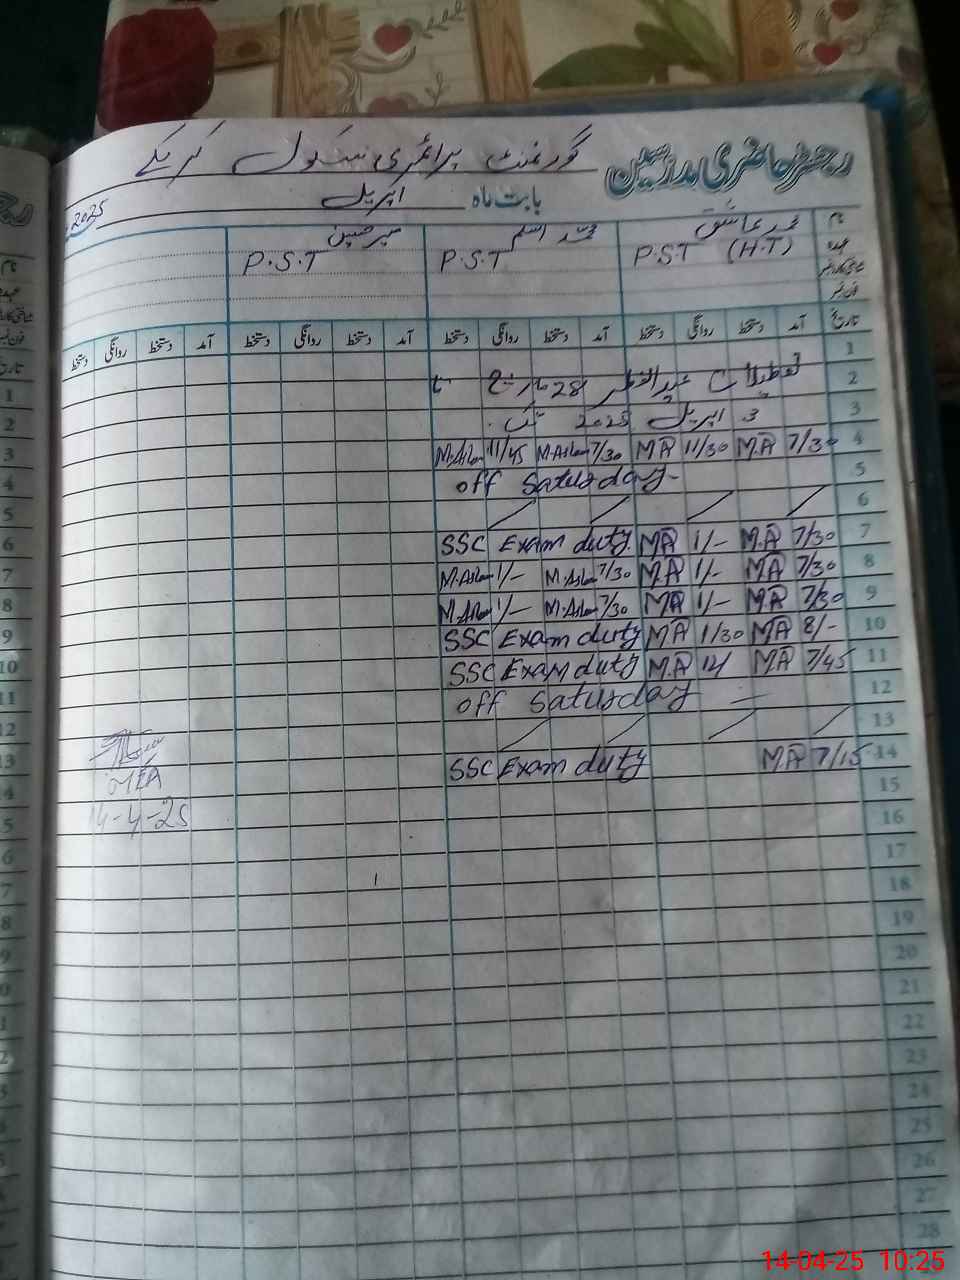 رجسٹر حاضری مدرسین گورنمنٹ پرائمری سکول
بابت ماہ اپریل 2025
نام محمد عاشق محمد اسلم میر حسین
عہدہ P.S.T (H.T) P.S.T P.S.T
شناختی کارڈ نمبر
فون نمبر
تاریخ آمد دستخط روانگی دستخط آمد دستخط روانگی دستخط آمد دستخط روانگی دستخط آمد دستخط روانگی دستخط
1
2 تعطیلات عیدالفطر 28 مارچ تا
3 3 اپریل 2025 تک
4 7/30 M.A 11/30 MA 7/30 M.Aslam 11/45 M.Aslam
5 off Saturday
6
7 7/30 M.A 1/- MA SSC Exam duty
8 7/30 MA 1/- M.A 7/30 M.Aslam 1/- M.Aslam
9 7/30 M.A 1/- MA 7/30 M.Aslam 1/- M.Aslam
10 8/- MA 1/30 MA SSC Exam duty
11 7/45 MA 12/ M.A SSC Exam duty
12 off Saturday
13
14 7/15 M.A SSC Exam duty
MEA
14-4-25
15
16
17
18
19
20
21
22
23
24
25
26
27
28
14-04-25 10:25